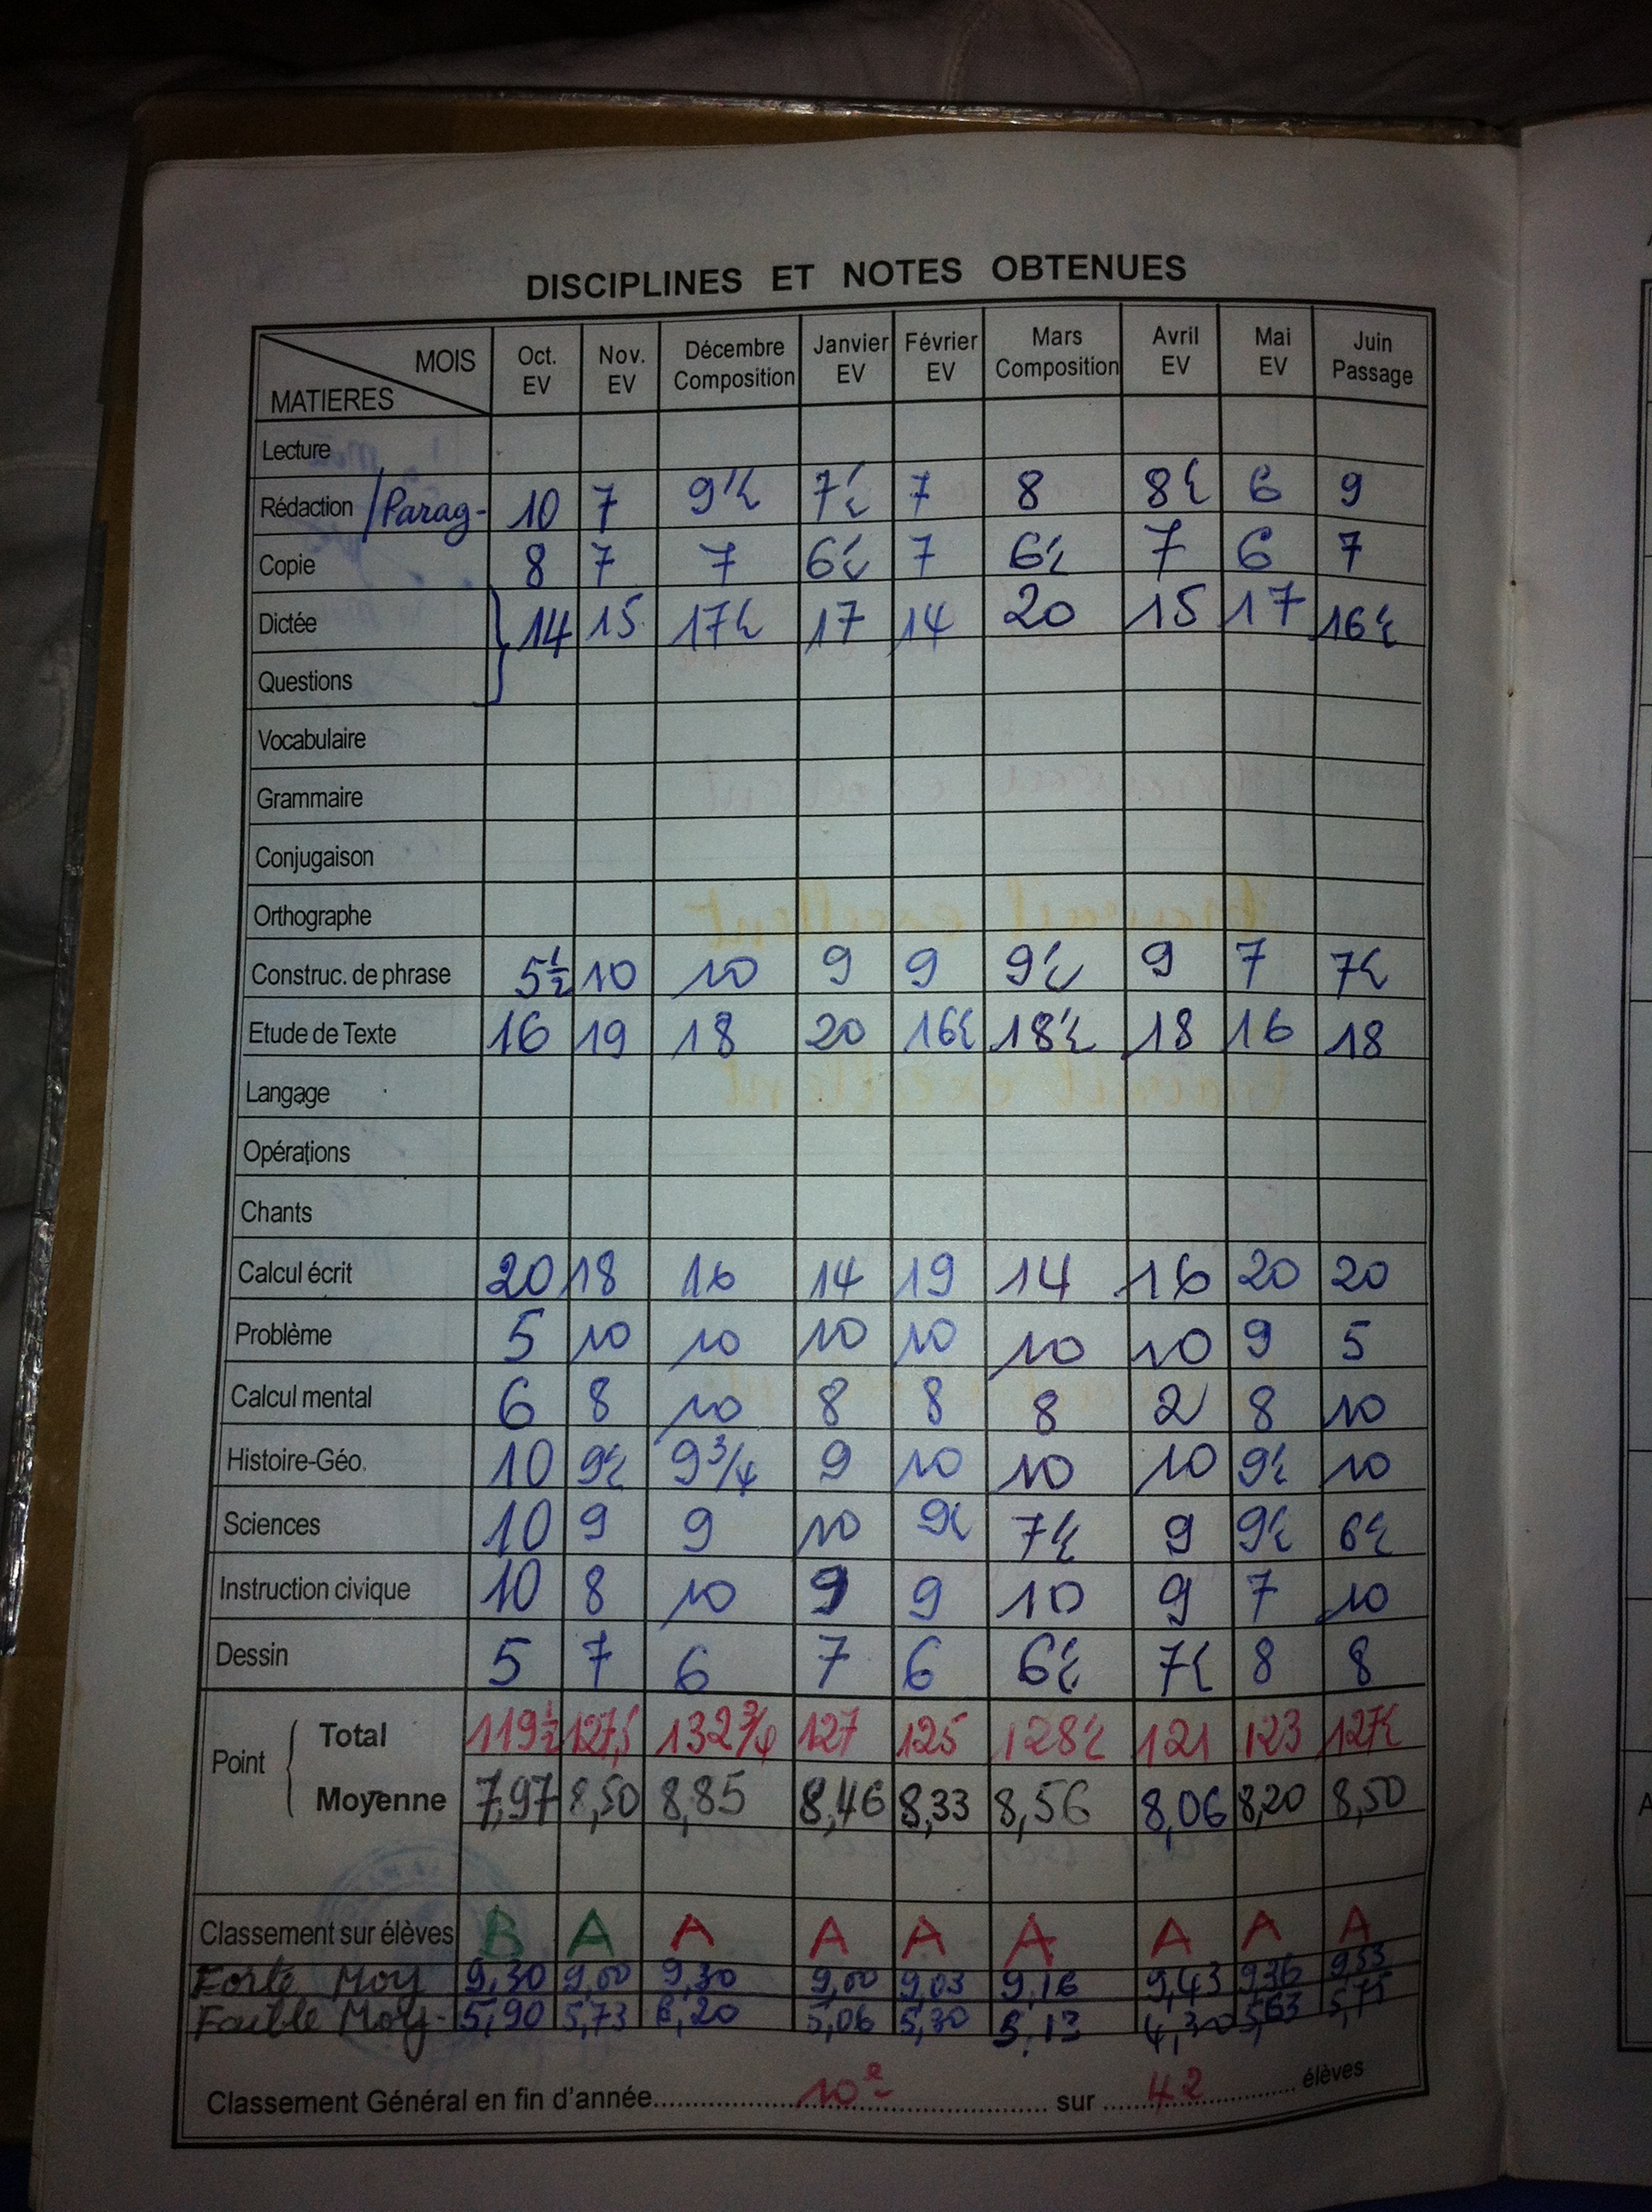 DISCIPLINES ET NOTES OBTENUES
MOIS MATIERES Oct. EV Nov. EV Décembre Composition Janvier EV Février EV Mars Composition Avril EV Mai EV Juin Passage
Lecture
Rédaction /Parag- 10 7 9½ 7½ 7 8 8½ 6 9
Copie 8 7 7 6½ 7 6½ 7 6 7
Dictée 14 15 17½ 17 14 20 15 17 16½
Questions
Vocabulaire
Grammaire
Conjugaison
Orthographe
Construc. de phrase 5½ 10 10 9 9 9½ 9 7 7½
Etude de Texte 16 19 18 20 16½ 18½ 18 16 18
Langage
Opérations
Chants
Calcul écrit 20 18 16 14 19 14 16 20 20
Problème 5 10 10 10 10 10 10 9 5
Calcul mental 6 8 10 8 8 8 2 8 10
Histoire-Géo. 10 9½ 9 3/4 9 10 10 10 9½ 10
Sciences 10 9 9 10 9½ 7½ 9 9½ 6½
Instruction civique 10 8 10 9 9 10 9 7 10
Dessin 5 7 6 7 6 6½ 7½ 8 8
Point Total 119½ 127,5 132 3/4 127 125 128½ 121 123 127½
Moyenne 7,97 8,50 8,85 8,46 8,33 8,56 8,06 8,20 8,50
Classement sur élèves B A A A A A A A A
Forte Moy 9,30 9,00 9,30 9,00 9,03 9,16 9,43 9,36 9,53
Faible Moy- 5,90 5,73 6,20 5,06 5,30 5,13 4,30 5,63
Classement Général en fin d'année 10e sur 42 élèves